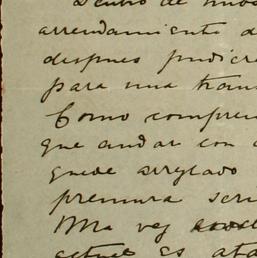 Dentro de unos
arrendamiento d
despues pudier
para una tran
Como compren
que andar con
quede arreglado
premura seri
Una vez
actual es ata